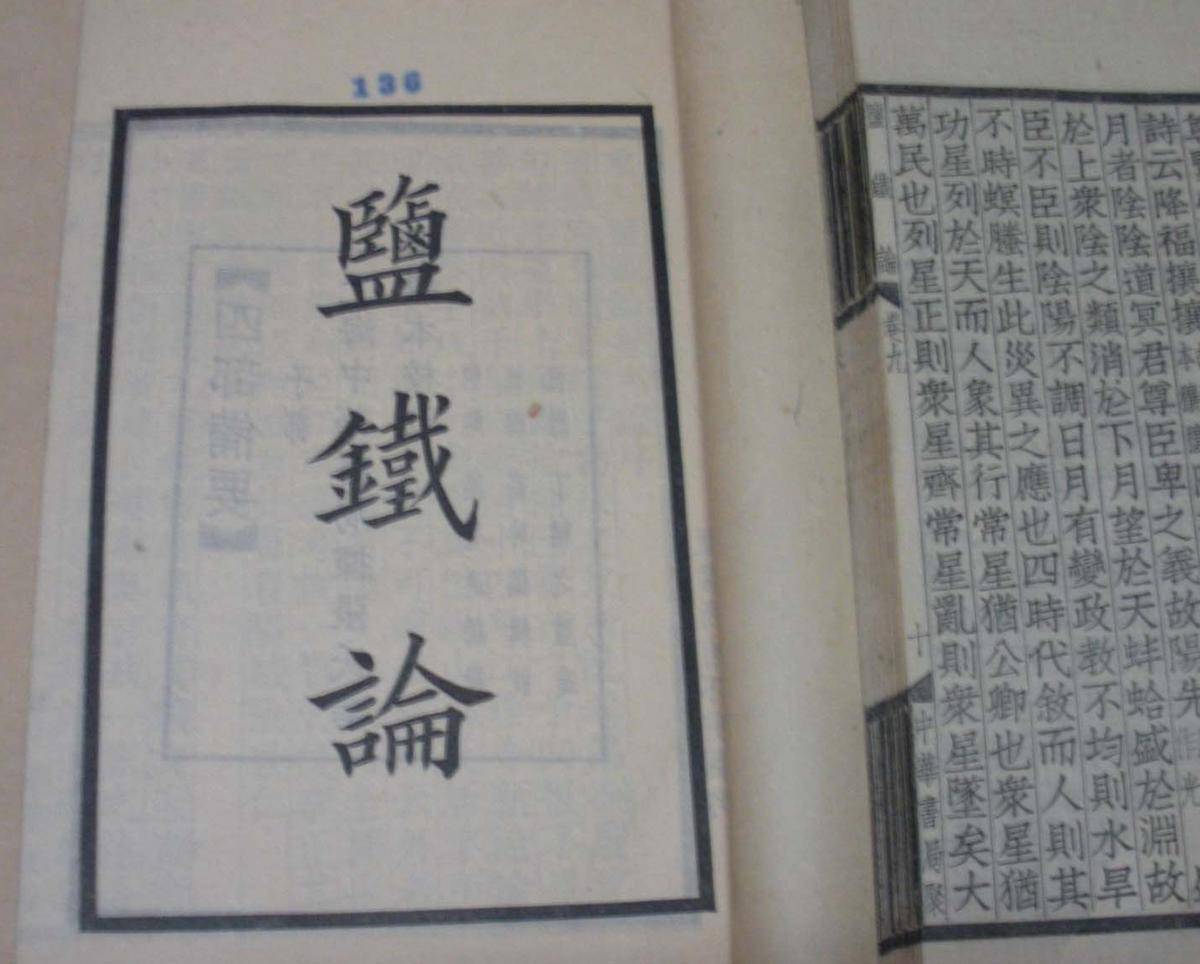 136
鹽鐵論
四部備要
詩云降福攘攘
月者陰陰道冥君尊臣卑之義故陽先
於上衆陰之類消於下月望於天蚌蛤盛於淵故
臣不臣則陰陽不調日月有變政教不均則水旱
不時螟螣生此災異之應也四時代敘而人則其
功星列於天而人象其行常星猶公卿也衆星猶
萬民也列星正則衆星齊常星亂則衆星墜矣大
鹽鐵論 卷九 十 中華書局聚